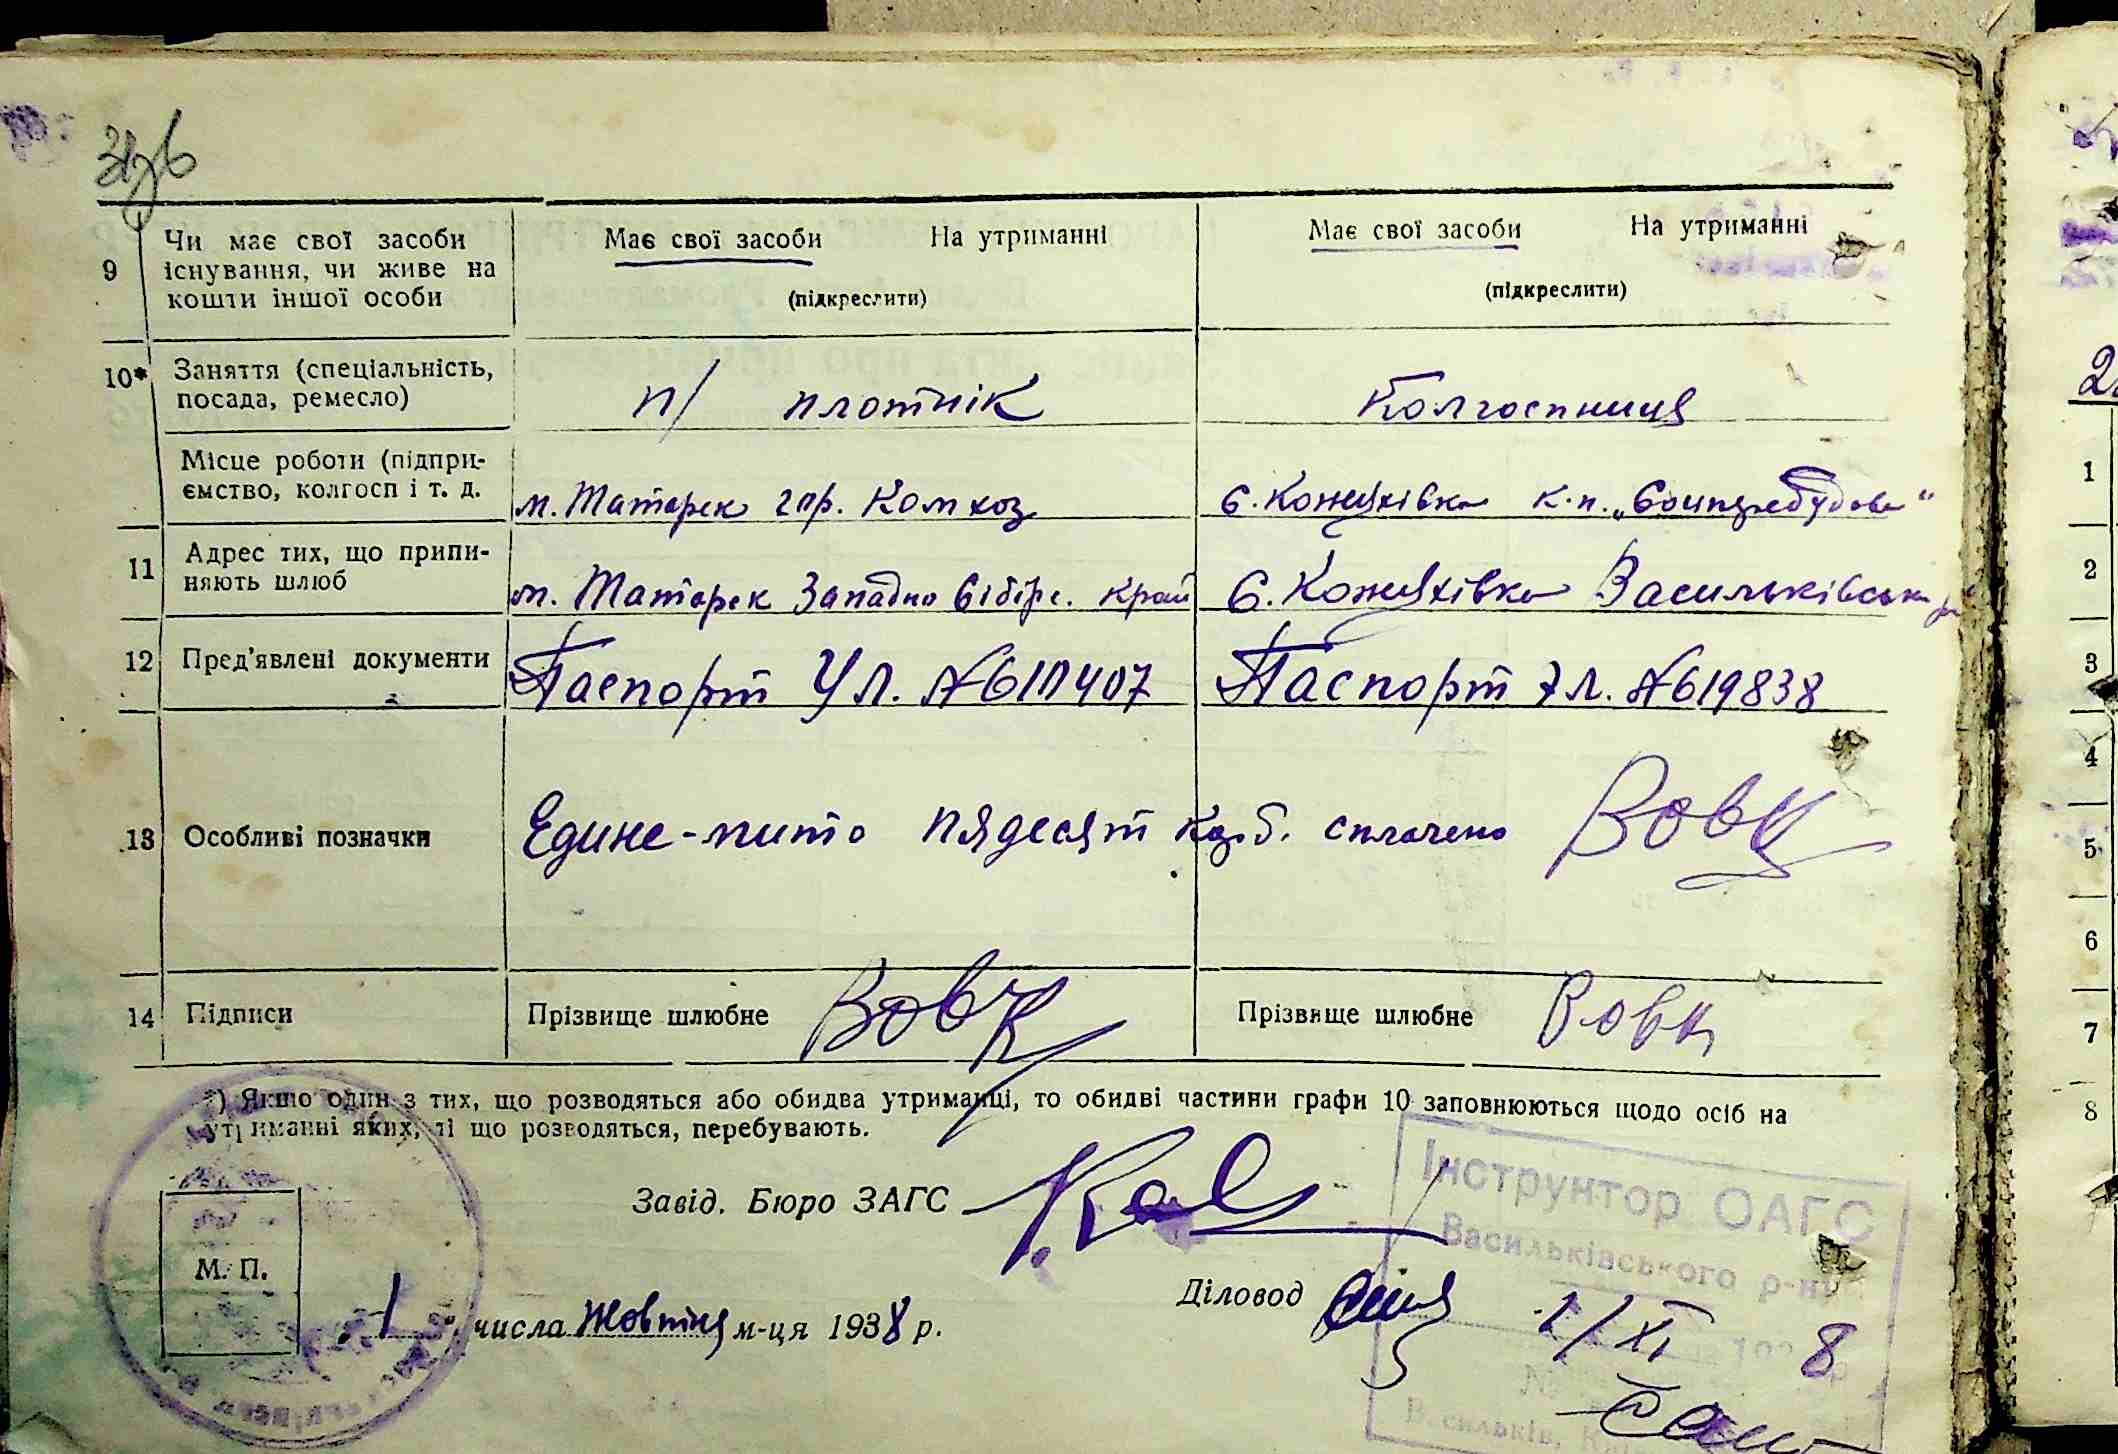 9 Чи має свої засоби існування, чи живе на кошти іншої особи
Має свої засоби На утриманні
(підкреслити)
Має свої засоби На утриманні
(підкреслити)
10* Заняття (спеціальність, посада, ремесло)
п/ плотнік
Колгоспниця
Місце роботи (підпри-
ємство, колгосп і т. д.
м. Татарск гор. Комхоз
с. Кожухівка к.п.
11 Адрес тих, що припи-
няють шлюб
м. Татарск Западно Сібірс. край
С. Кожухівка Васильківськ
12 Пред'явлені документи
Паспорт УЛ. №
Паспорт №619838
13 Особливі позначки
Едине-мито пядесят карб. сплачено Вовк
14 Підписи
Прізвище шлюбне Вовк
Прізвище шлюбне Вовк
*) Якщо один з тих, що розводяться або обидва утриманці, то обидві частини графи 10 заповнюються щодо осіб на
утриманні яких, ті що розводяться, перебувають.
Завід. Бюро ЗАГС
Інструктор ОАГС
Васильківського р-ну
Діловод
М. П.
1 числа Жовтня м-ця 1938 р.
1/XI 8
2
1
2
3
4
5
6
7
8